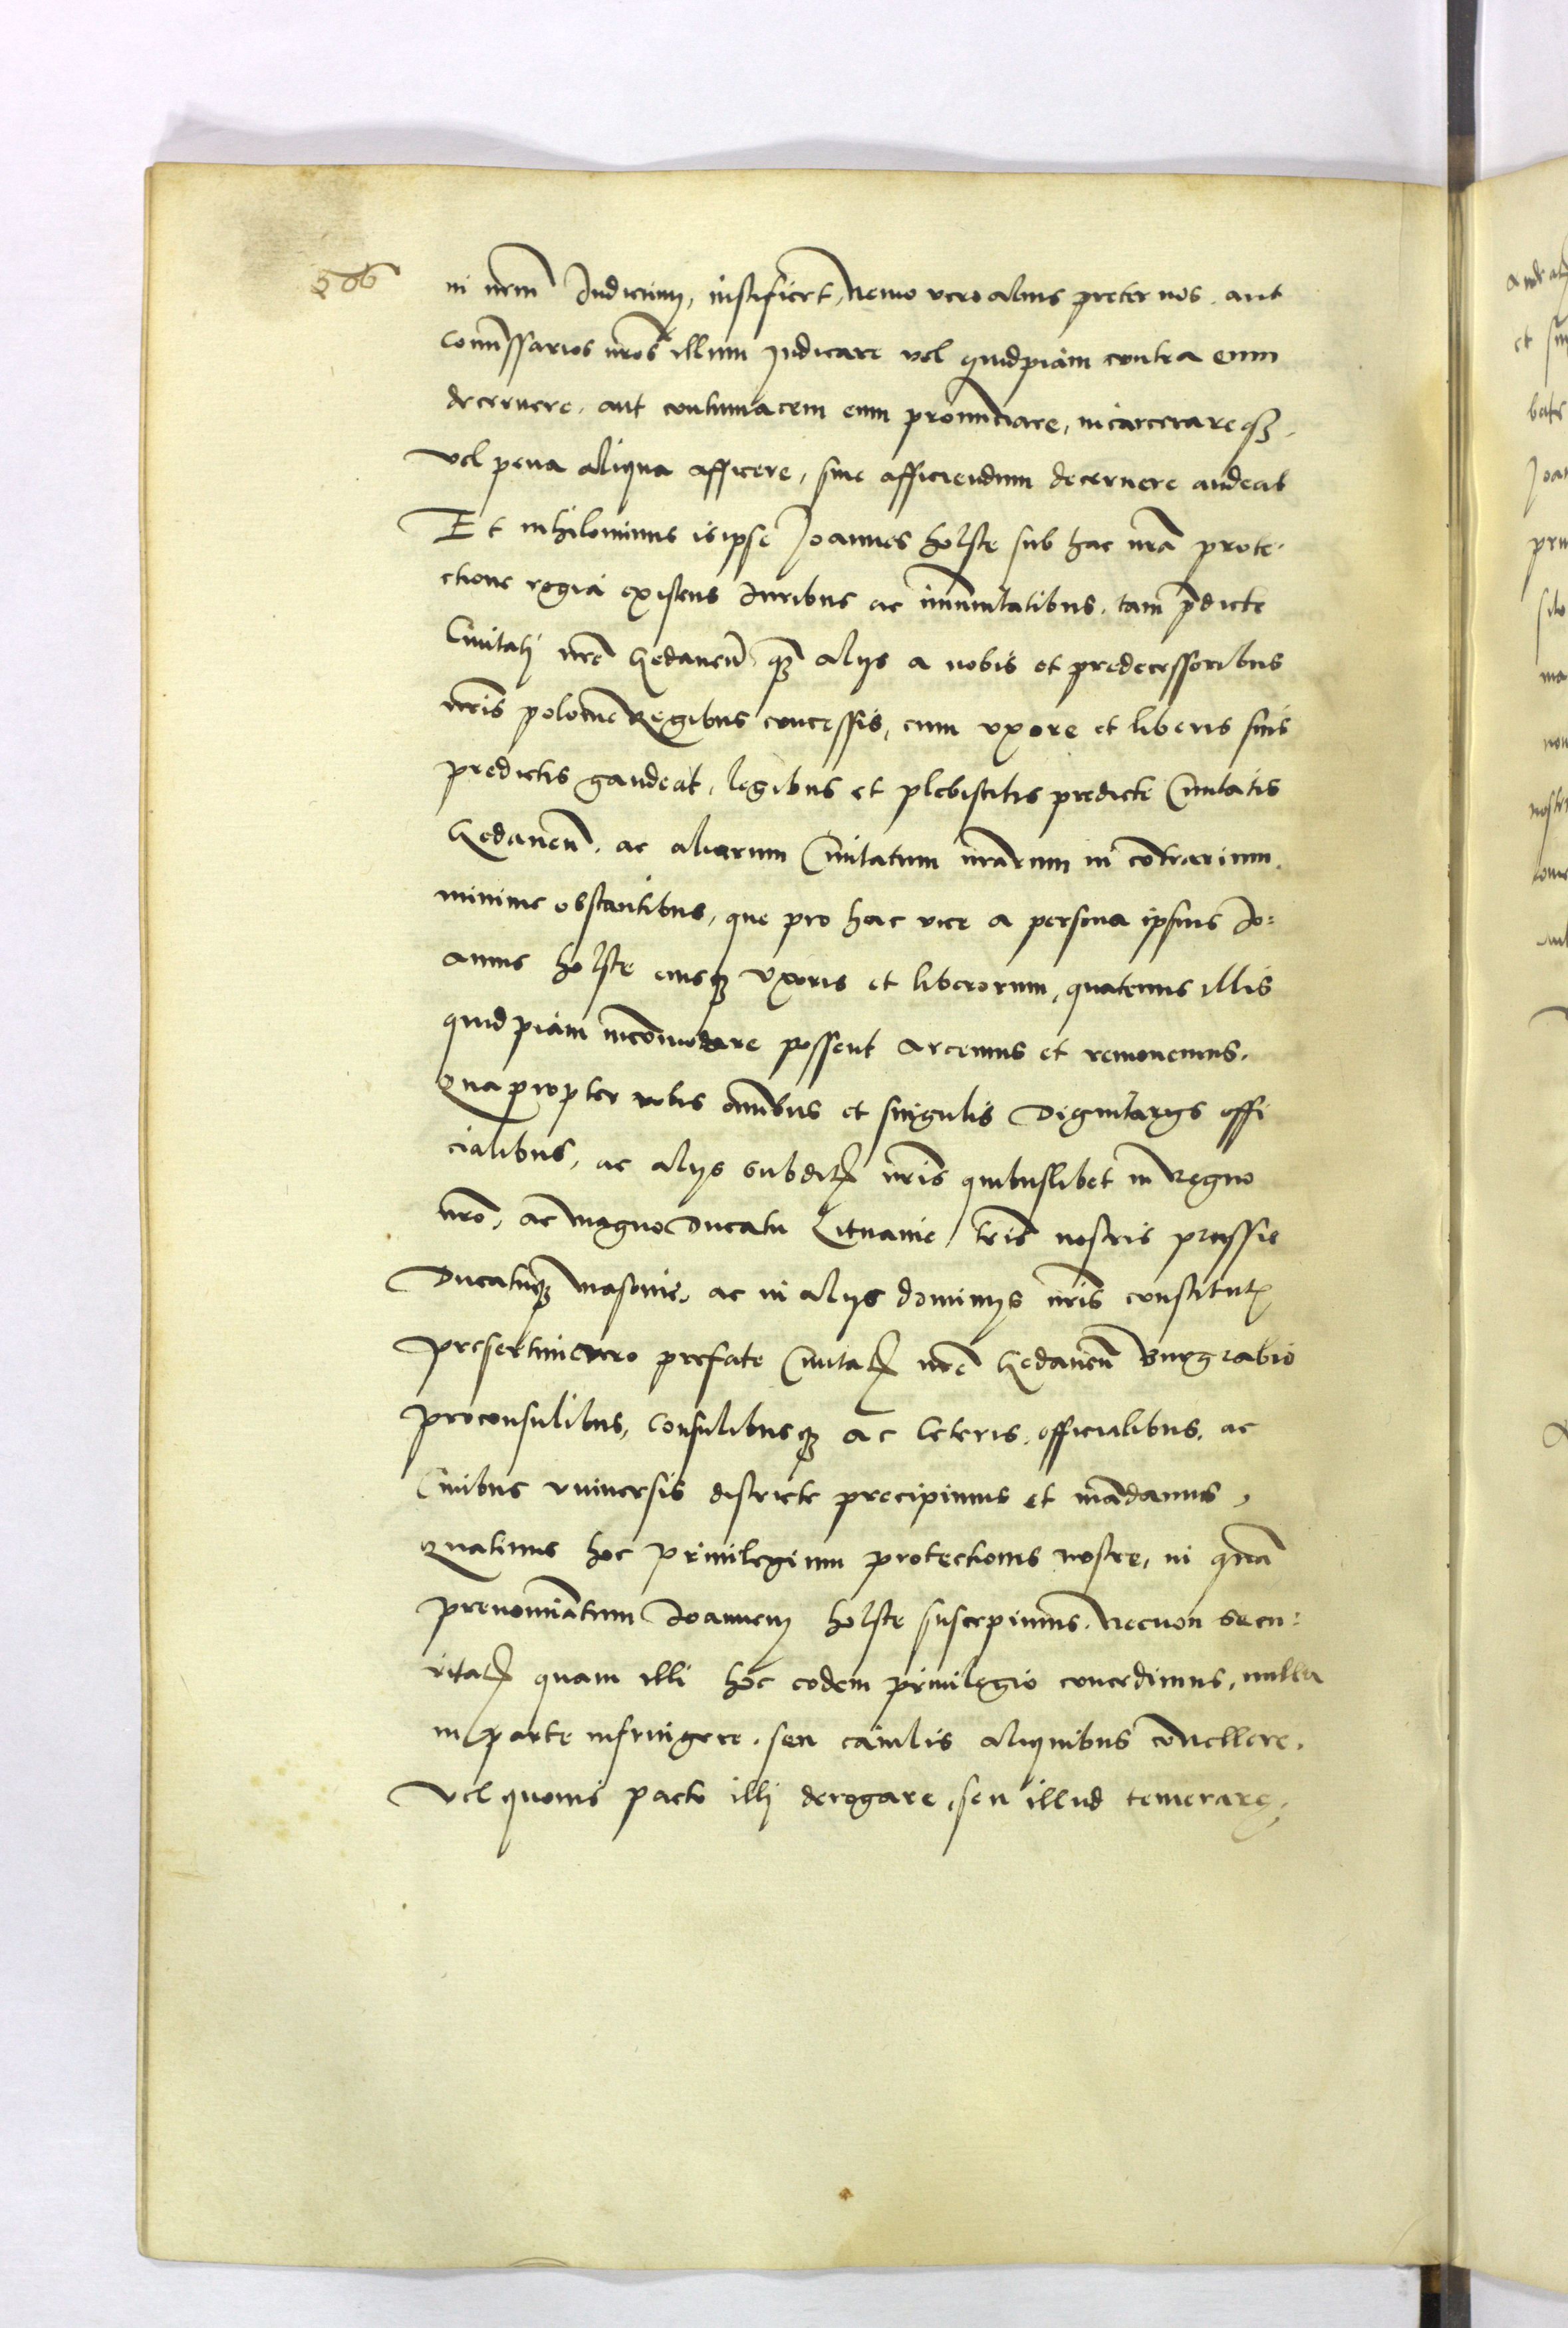 506
in nrm̄ Iudicium, iustificet, Nemo vero alius preter nos, aut
Com̄issarios nr̄os illum iudicare vel quidpiam contra eum
decernere, aut contumacem eum pronunciare, incarcerareqʒ,
vel pena aliqua afficere, siue afficiendum decernere audeat
Et nihilominus is ipse Joannes holste sub hac nr̄a prote-
ctione regia existens Iuribus ac im̄unitatibus, tam p̄dicte
Ciuitatj nr̄e Gedanen̄ qʒ alijs a nobis et predecessoribus
nr̄is polonie Regibus concessis, cum vxore et liberis suis
predictis gaudeat, legibus et plebiscitis predicte Ciuitatis
Gedanen̄, ac aliarum Ciuitatum nr̄arum in contrarium
minime obstantibus, que pro hac vice a persona ipsius Jo:
annis holste eiusqʒ vxoris et liberorum, quatenus illis
quidpiam incom̄odare possent arcemus et remouemus.
Qua propter vobis om̄ibus et singulis Dignitarijs offi
cialibus, ac alijs subditꝭ nr̄is quibuslibet in Regno
nr̄o, ac magno Ducatu Lituanie tr̄is nostris prussie
Ducatuqʒ masouie, ac in alijs dominijs nr̄is constitutꝭ
presertim vero prefate Ciuitatꝭ nr̄e Gedanen̄ Burgrabio
proconsulibus, Consulibusqʒ ac Ceteris, officialibus, ac
Ciuibus vniuersis districte precipimus et mādamus,
Quatinus hoc priuilegium protectionis nostre, in quā
prenominatum Joannem holste suscepimus. Necnon secu:
ritatꝭ quam illi hoc eodem priuilegio concedimus, nulla
in parte infringere, seu cauilis aliquibus conuellere,
Vel quouis pacto illj derogare, seu illud temerare,